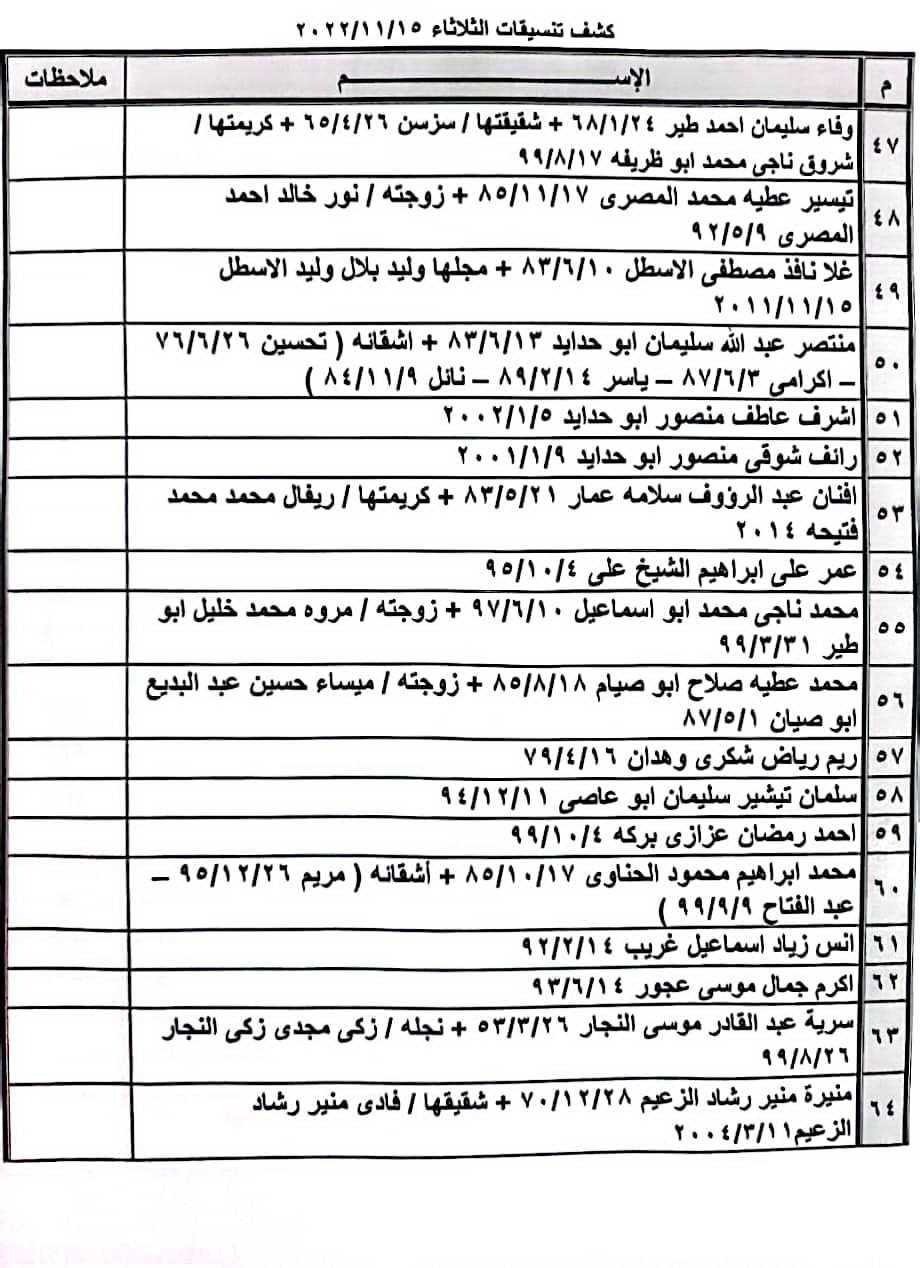 كشف تنسيقات الثلاثاء ٢٠٢٢/١١/١٥
م الإســـــــــم ملاحظات
٤٧ وفاء سليمان احمد طير ٦٨/١/٢٤ + شقيقتها / سزسن ٦٥/٤/٢٦ + كريمتها /
شروق ناجى محمد ابو ظريفه ٩٩/٨/١٧
٤٨ تيسير عطيه محمد المصرى ٨٥/١١/١٧ + زوجته / نور خالد احمد
المصرى ٩٢/٥/٩
٤٩ غلا نافذ مصطفى الاسطل ٨٣/٦/١٠ + مجلها وليد بلال وليد الاسطل
٢٠١١/١١/١٥
٥٠ منتصر عبد الله سليمان ابو حدايد ٨٣/٦/١٣ + اشقانه ( تحسين ٧٦/٦/٢٦
– اكرامى ٨٧/٦/٣ – ياسر ٨٩/٢/١٤ – نانل ٨٤/١١/٩ )
٥١ اشرف عاطف منصور ابو حدايد ٢٠٠٢/١/٥
٥٢ رانف شوقى منصور ابو حدايد ٢٠٠١/١/٩
٥٣ افنان عبد الرؤوف سلامه عمار ٨٣/٥/٢١ + كريمتها / ريفال محمد محمد
فتيحه ٢٠١٤
٥٤ عمر على ابراهيم الشيخ على ٩٥/١٠/٤
٥٥ محمد ناجى محمد ابو اسماعيل ٩٧/٦/١٠ + زوجته / مروه محمد خليل ابو
طير ٩٩/٣/٣١
٥٦ محمد عطيه صلاح ابو صيام ٨٥/٨/١٨ + زوجته / ميساء حسين عبد البديع
ابو صيان ٨٧/٥/١
٥٧ ريم رياض شكرى وهدان ٧٩/٤/١٦
٥٨ سلمان تيشير سليمان ابو عاصى ٩٤/١٢/١١
٥٩ احمد رمضان عزازى بركه ٩٩/١٠/٤
٦٠ محمد ابراهيم محمود الحناوى ٨٥/١٠/١٧ + أشقانه ( مريم ٩٥/١٢/٢٦ –
عبد الفتاح ٩٩/٩/٩ )
٦١ انس زياد اسماعيل غريب ٩٢/٢/١٤
٦٢ اكرم جمال موسى عجور ٩٣/٦/١٤
٦٣ سرية عبد القادر موسى النجار ٥٣/٣/٢٦ + نجله / زكى مجدى زكى النجار
٩٩/٨/٢٦
٦٤ منيرة منير رشاد الزعيم ٧٠/١٢/٢٨ + شقيقها / فادى منير رشاد
الزعيم٢٠٠٤/٣/١١